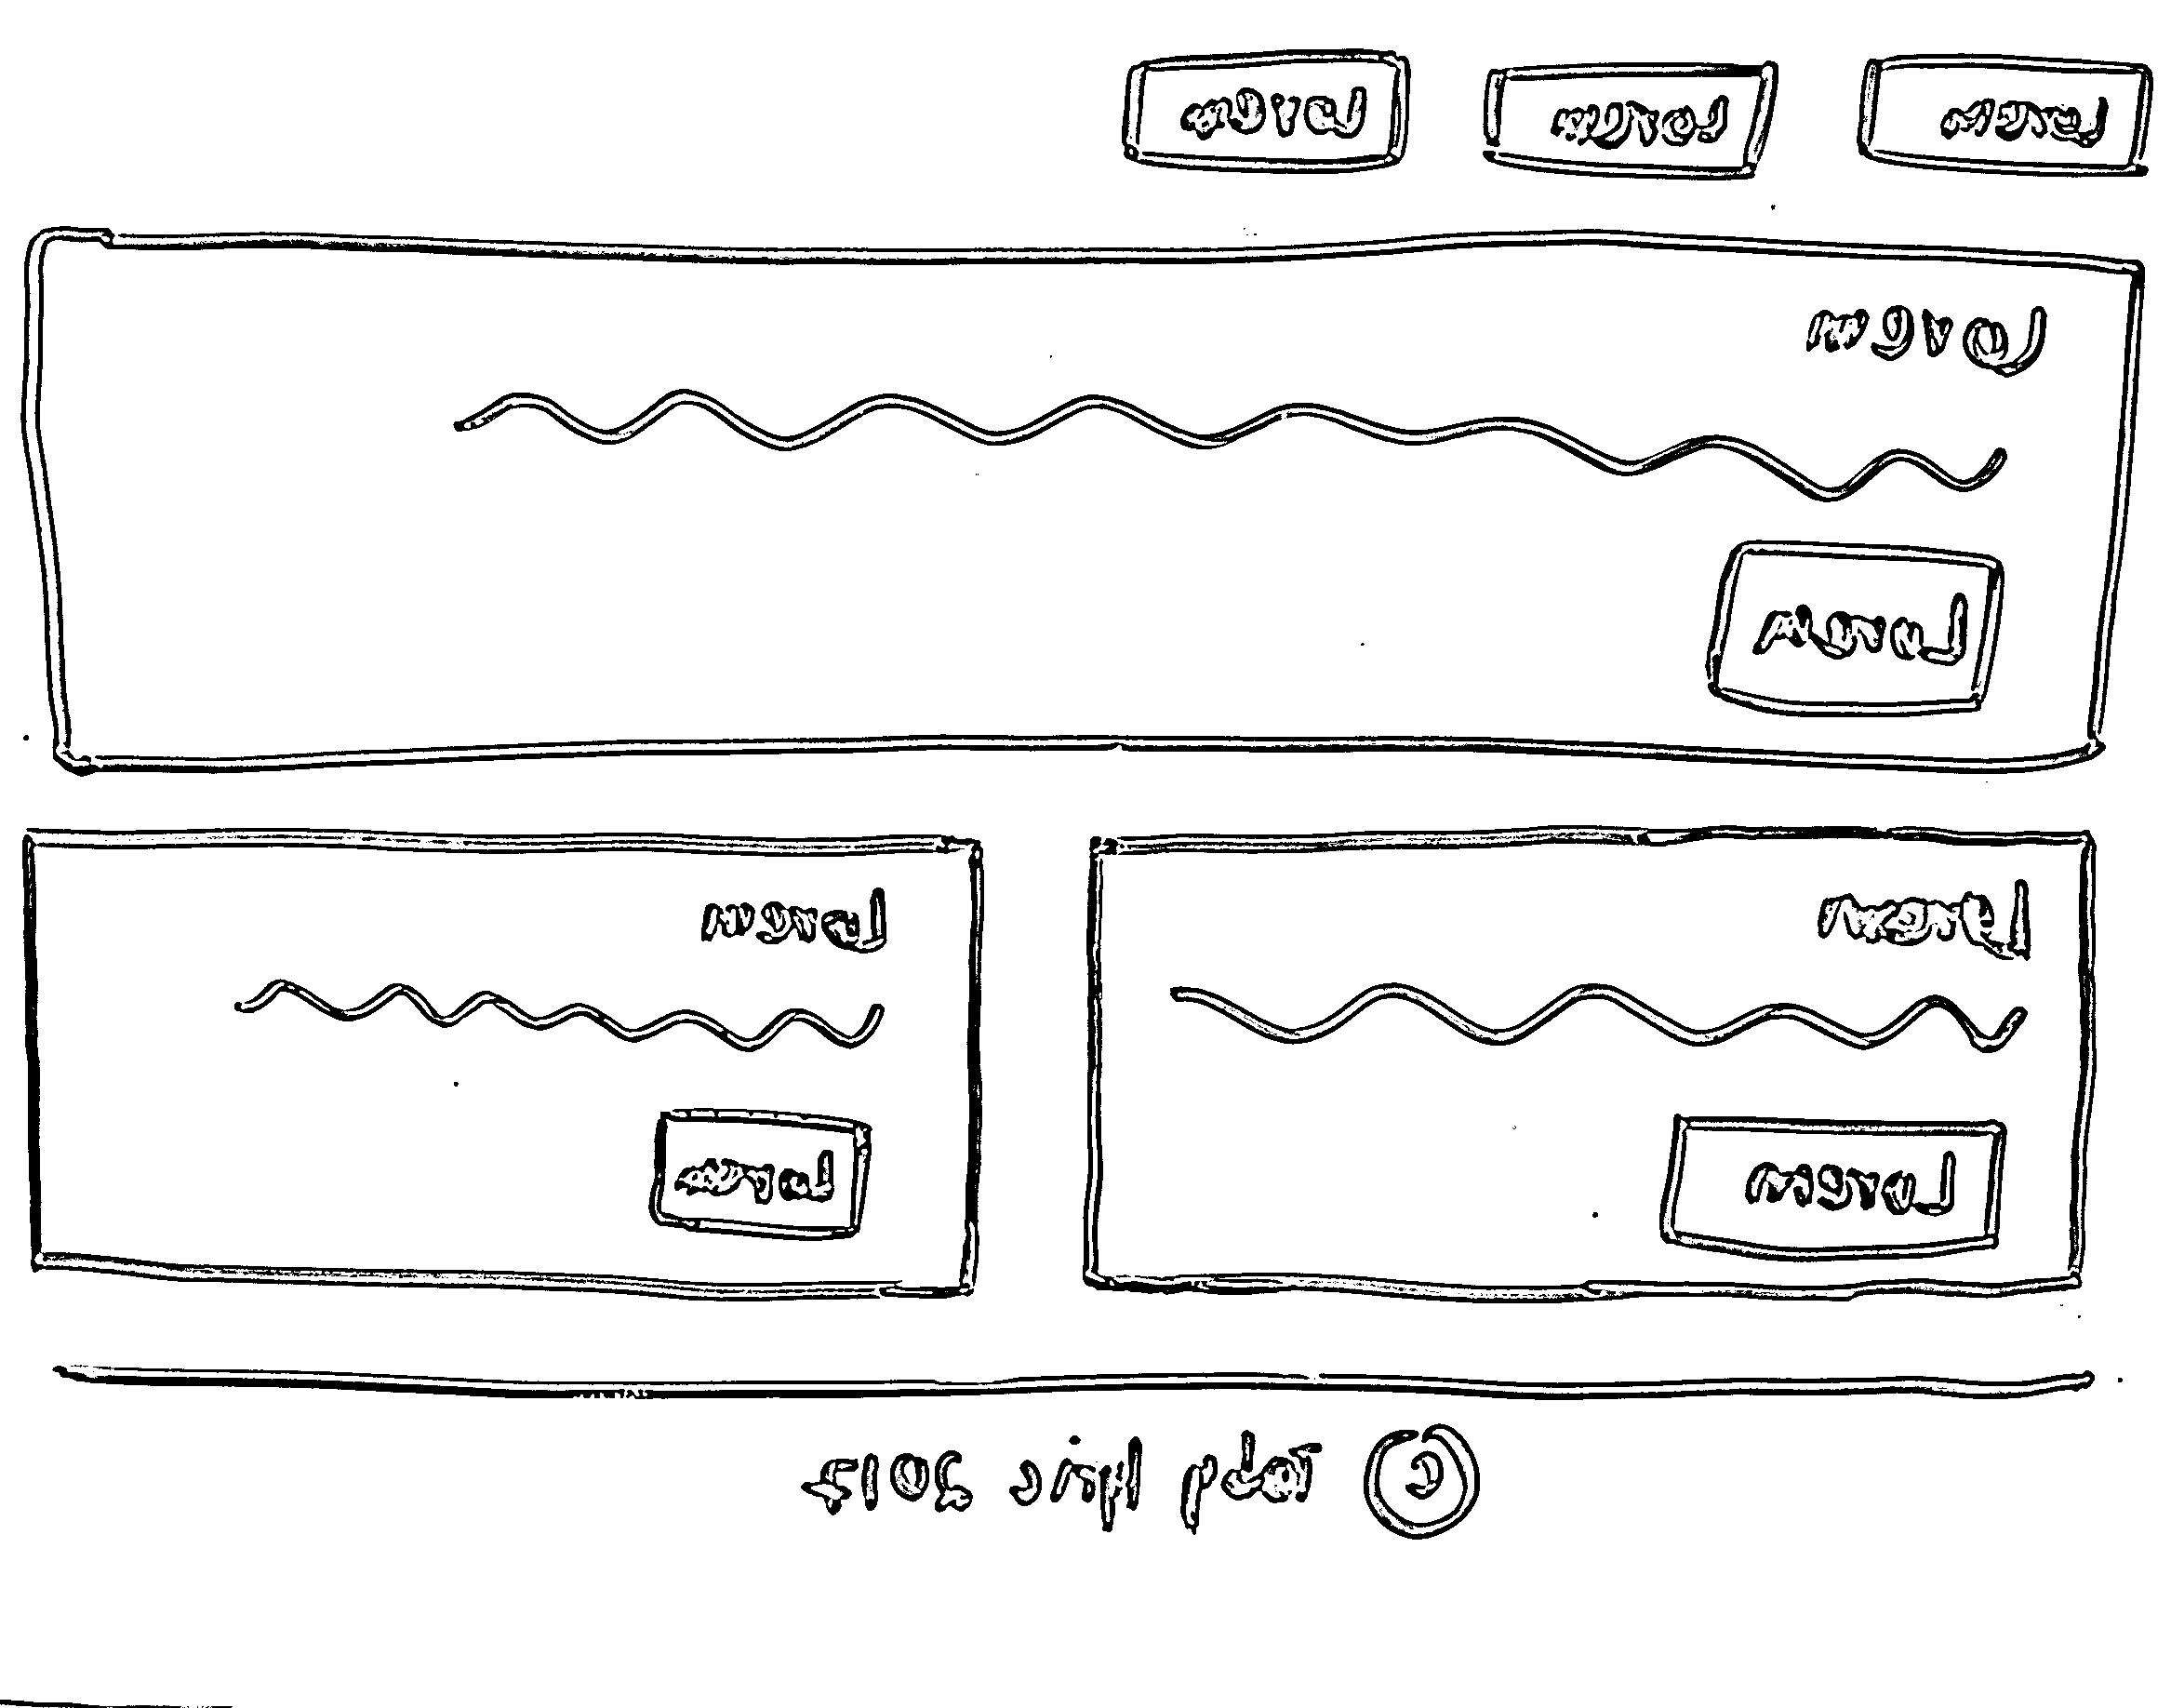 Lorem Lorem Lorem
Lorem
Lorem
Lorem
Lorem
Lorem
Lorem
© 2017